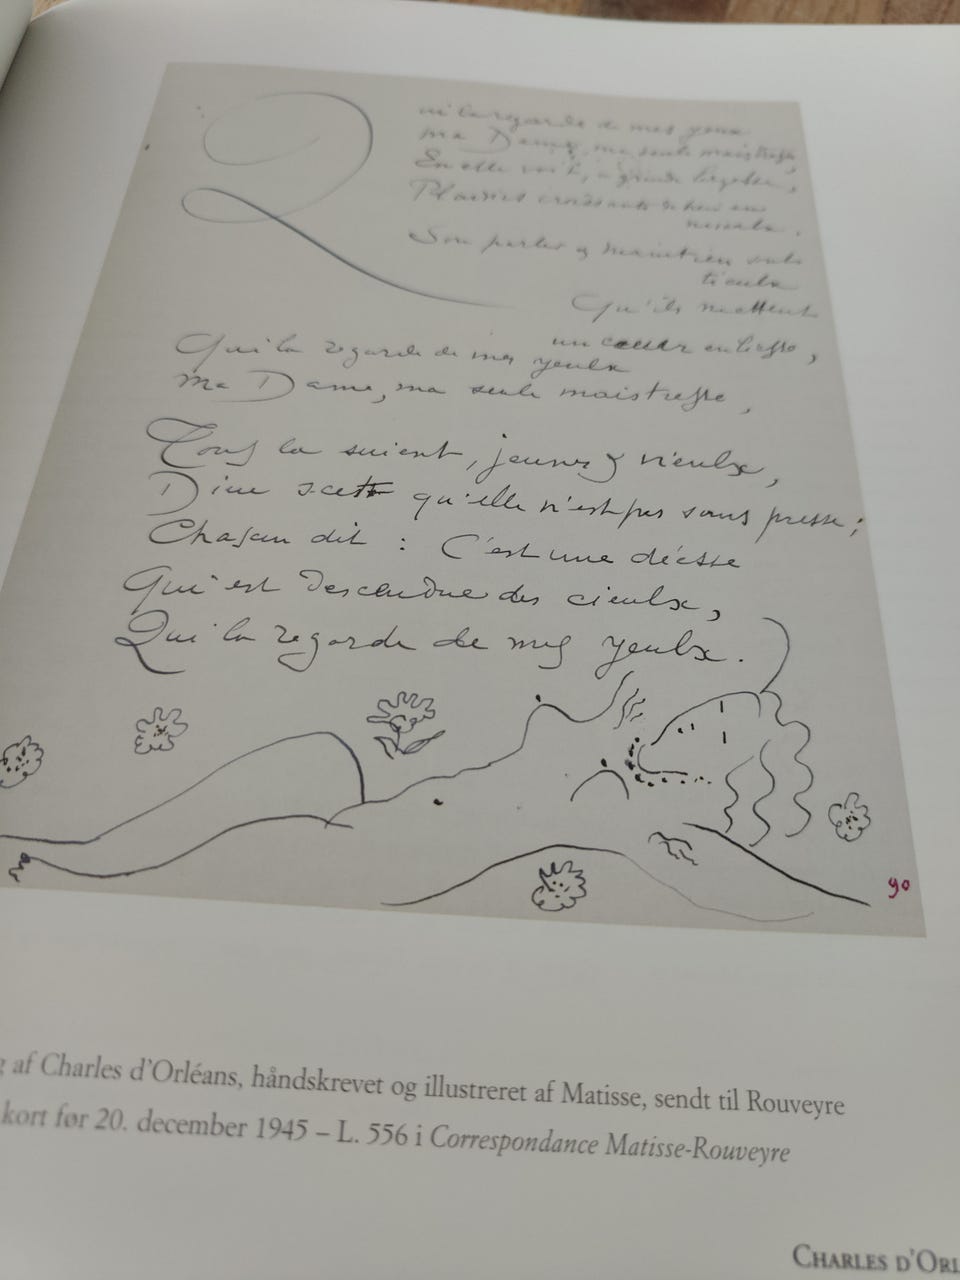 Qui la regarde de mes yeux
ma Dame, ma seule maistresse,
En elle voit, à grande largesse,
Plaisirs croissants de bien en
Son parler & maintien sont
tieulx
Qu'ils mettent
un cœur en liesse,
Qui la regarde de mes yeulx
ma Dame, ma seule maistresse,
Tous la suient, jeunes & vieulx,
Dieu scet qu'elle n'est pas sans presse;
Chascun dit : C'est une déesse
Qui est descendue des cieulx,
Qui la regarde de mes yeulx.
90
af Charles d'Orléans, håndskrevet og illustreret af Matisse, sendt til Rouveyre
kort før 20. december 1945 – L. 556 i Correspondance Matisse-Rouveyre
CHARLES D'ORL